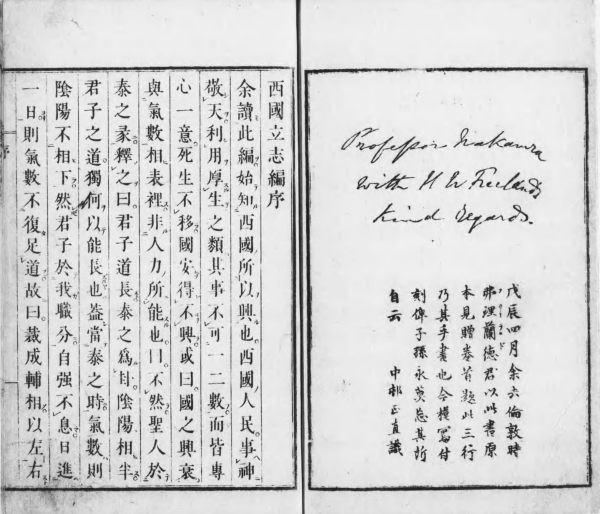 Professor Nakamura
with H W Freeland's
kind regards.
戊辰四月余去倫敦時
弗理蘭德君以此書原
本見贈卷首題此三行
乃其手書也今摸寫付
刻俾子孫永莫忘其所
自云 中邨正直識
西國立志編序
余讀此編始知西國所以興也西國人民事神
敬天利用厚生之類其事不可一二數而皆專
心一意死生不移國安得不興或曰國之興衰
與氣數相表裡非人力所能也曰不然聖人於
泰之彖釋之曰君子道長泰之爲卦陰陽相半
君子之道獨何以能長也葢當泰之時氣數則
陰陽不相下然君子於我職分自强不息日進
一日則氣數不復足道故曰裁成輔相以左右
序